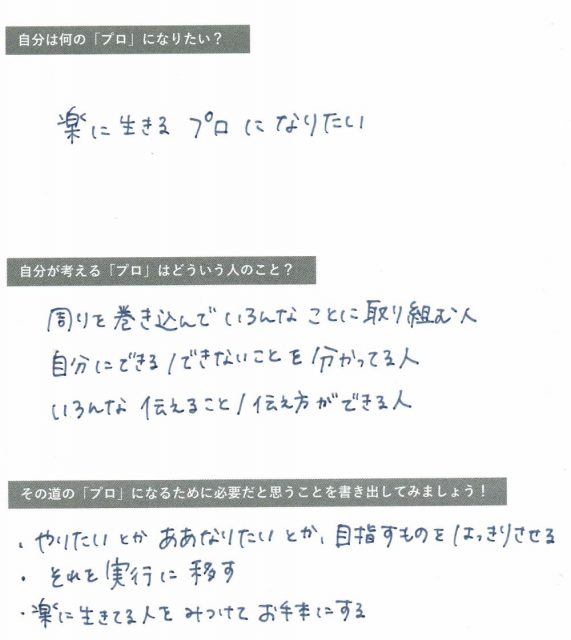 自分は何の「プロ」になりたい？
楽に生きる プロ になりたい
自分が考える「プロ」はどういう人のこと？
周りを巻き込んでいろんなことに取り組む人
自分にできる/できないことを分かってる人
いろんな伝えること/伝え方ができる人
その道の「プロ」になるために必要だと思うことを書き出してみましょう！
・やりたいとか ああなりたいとか、目指すものをはっきりさせる
・それを実行に移す
・楽に生きてる人をみつけてお手本にする